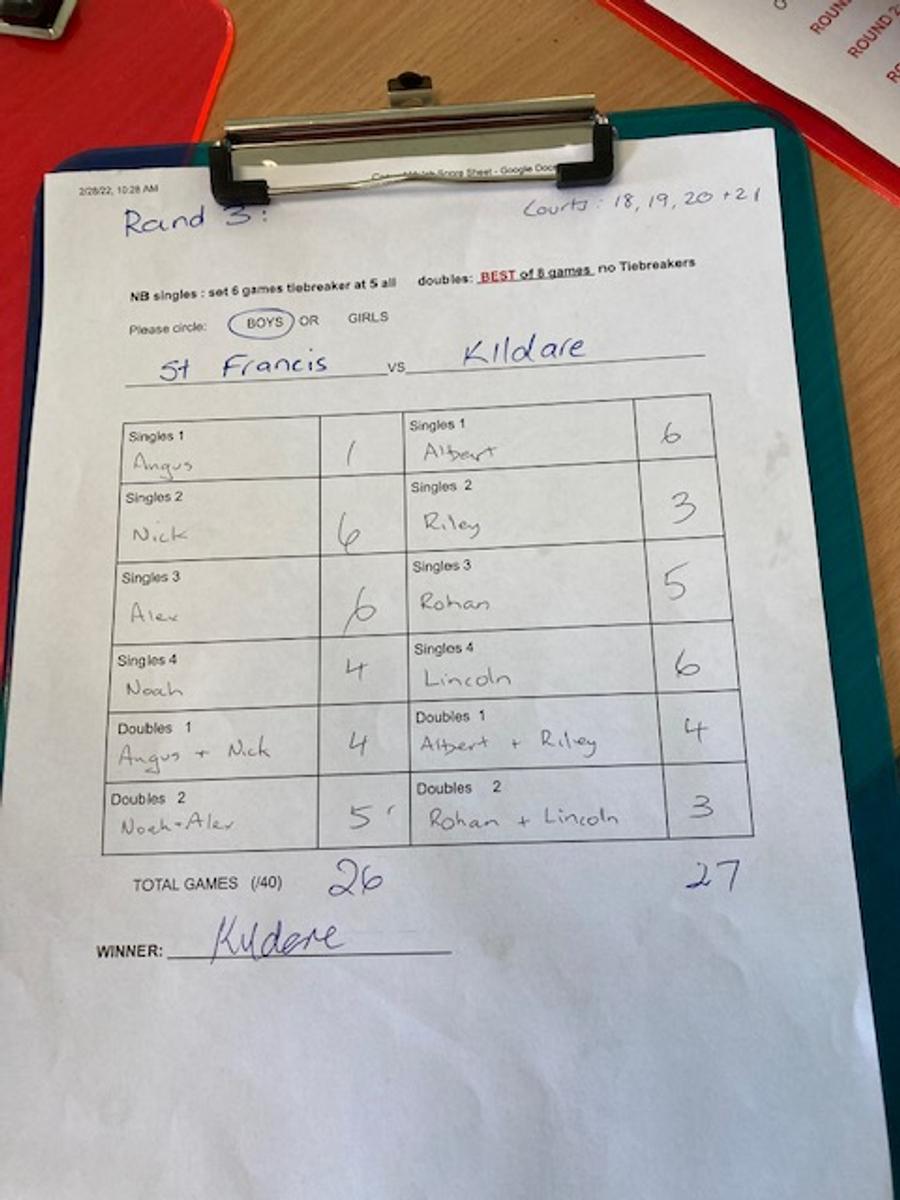 ROUND
ROUND 2
2/28/22, 10:28 AM
Score Sheet - Google Docs
Round 3:
Courts: 18, 19, 20 + 21
NB singles : set 6 games tiebreaker at 5 all doubles: BEST of 8 games no Tiebreakers
Please circle: BOYS OR GIRLS
St Francis vs Kildare
Singles 1 Singles 1
Angus 1 Albert 6
Singles 2 Singles 2
Nick 6 Riley 3
Singles 3 Singles 3
Alex 6 Rohan 5
Singles 4 Singles 4
Noah 4 Lincoln 6
Doubles 1 Doubles 1
Angus + Nick 4 Albert + Riley 4
Doubles 2 Doubles 2
Noah + Alex 5 Rohan + Lincoln 3
TOTAL GAMES (/40) 26 27
WINNER: Kildare